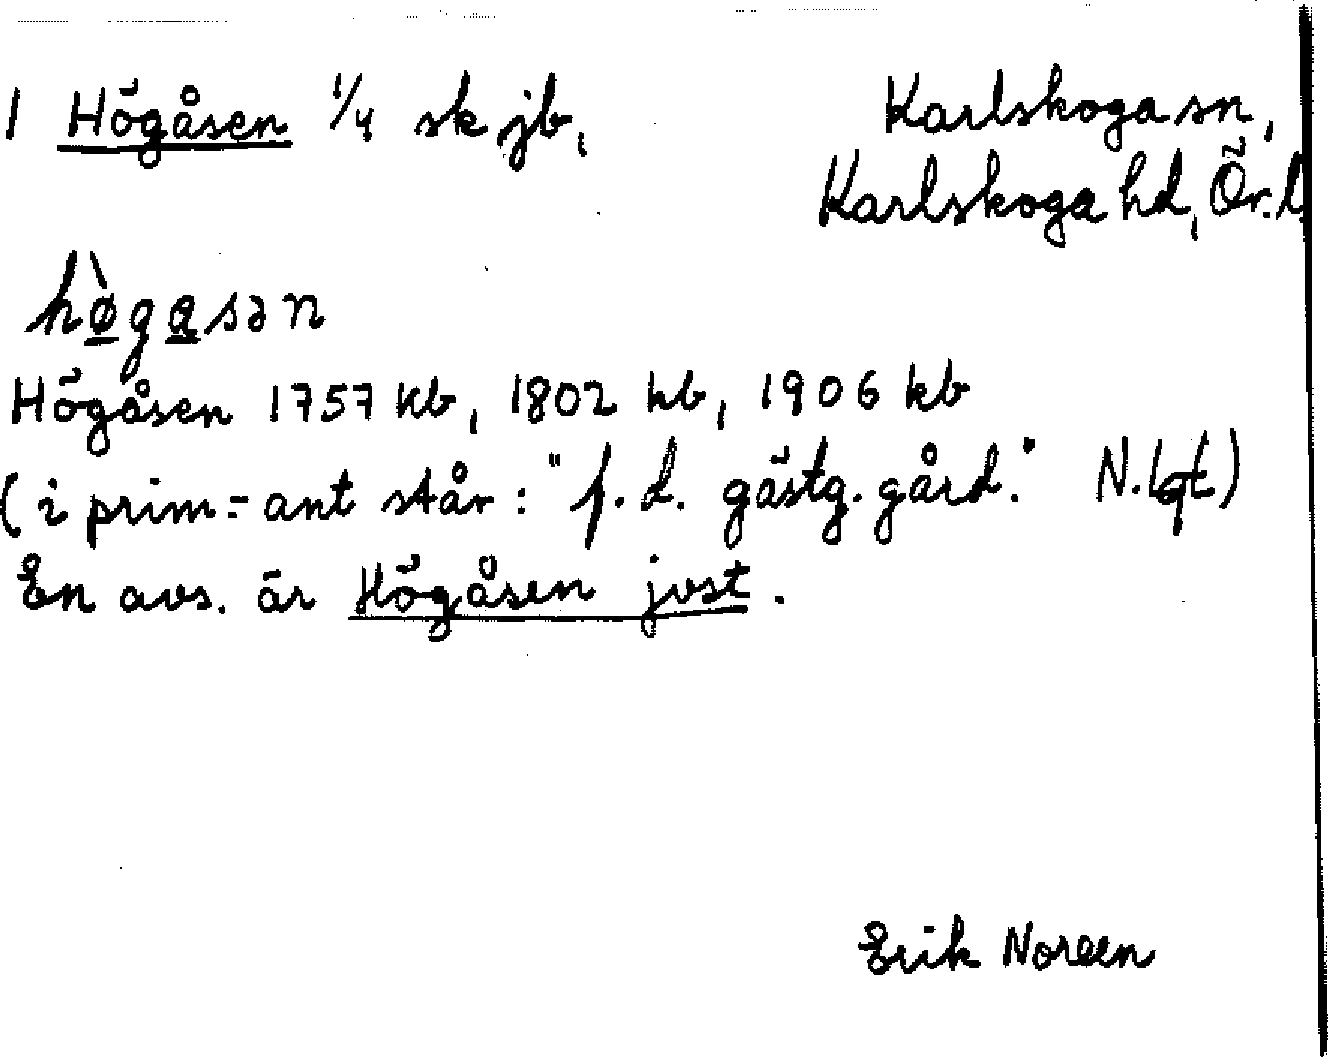 1 Högåsen 1/4 sk jb,
Karlskoga sn,
Karlskoga hd, Ör. l.
hø̀gasən
Högåsen 1757 kb, 1802 kb, 1906 kb
(i prim.-ant står: "f. d. gästg. gård." N. Lgt)
En avs. är Högåsen jvst.
Erik Noreen